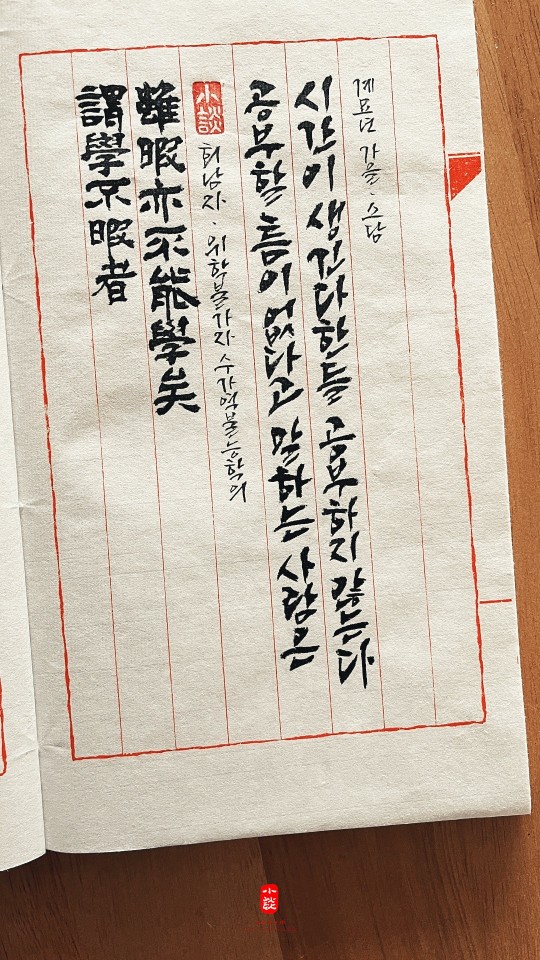 謂學不暇者
雖暇亦不能學矣
小談
회남자 · 위학불가자 수가역불능학의
공부할 틈이 없다고 말하는 사람은
시간이 생긴다한들 공부하지 않는다
계묘년 가을 · 소담
小談